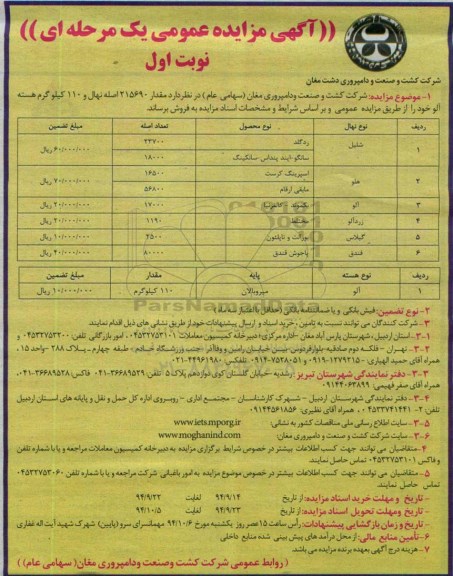 ((آگهی مزایده عمومی یک مرحله ای))
نوبت اول
شرکت کشت و صنعت و دامپروری دشت مغان
۱- موضوع مزایده: شرکت کشت و صنعت ودامپروری مغان (سهامی عام) در نظر دارد مقدار ۲۱۵۶۹۰ اصله نهال و ۱۱۰ کیلو گرم هسته
آلو خود را از طریق مزایده عمومی و بر اساس شرایط و مشخصات اسناد مزایده به فروش برساند.
ردیف نوع نهال نوع محصول تعداد اصله مبلغ تضمین
۱ شلیل ردگلد ۲۳۷۰۰ ۶۰/۰۰۰/۰۰۰ ریال
سانگو-ایندپنداس-سانکینگ ۱۸۰۰۰
۲ هلو اسپرینگ کرست ۱۶۵۰۰ ۷۰/۰۰۰/۰۰۰ ریال
مابقی ارقام ۵۶۸۰۰
۳ آلو ۱۷۰۰۰ ۲۰/۰۰۰/۰۰۰ ریال
۴ زردآلو مختلط ۱۱۹۰ ۲۰/۰۰۰/۰۰۰ ریال
۵ گیلاس بورلات و ناپلئون ۲۵۰۰ ۱۰/۰۰۰/۰۰۰ ریال
۶ فندق پاجوش فندق ۸۰۰۰۰ ۴۰/۰۰۰/۰۰۰ ریال
ردیف نوع هسته پایه مقدار مبلغ تضمین
۱ آلو میروبالان ۱۱۰ کیلوگرم ۱۰/۰۰۰/۰۰۰ ریال
ParsNamadData
۲- نوع تضمین: فیش بانکی و یا ضمانتنامه بانکی
۳- شرکت کنندگان می توانند نسبت به تامین، خرید اسناد و ارسال پیشنهادات خود از طریق نشانی های ذیل اقدام نمایند
۳-۱- استان اردبیل، شهرستان پارس آباد مغان - اداره مرکزی- دبیرخانه کمیسیون معاملات ۰۴۵۳۲۷۵۳۱۰۱، امور بازرگانی تلفن:
۳-۲- تهران - فلکه دوم صادقیه - بلوار فردوس - طبقه چهارم - پلاک ۲۸۸ - واحد ۱۵
همراه آقای حمید الهیاری: تلفکس: ۴۴۹۶۱۹۸۰-۰۲۱
۳-۳- دفتر نمایندگی شهرستان تبریز: رشدیه - خیابان گلستان کوی دوازدهم پلاک ۵ تلفن ۳۶۶۸۹۵۲۹-۰۴۱ فاکس ۳۶۶۸۹۵۲۸-۰۴۱
همراه آقای صفر فهیمی: ۰۹۱۴۴۰۶۳۸۹۹
۳-۴- دفتر نمایندگی شهرستان اردبیل - شهرک کارشناسان - مجتمع اداری - روبروی اداره کل حمل و نقل و پایانه های استان اردبیل
تلفن: ۲- ۰۴۵۳۳۷۴۱۴۴۱، همراه آقای نظیری: ۰۹۱۴۴۵۶۱۸۵۶
۳-۵- سایت اطلاع رسانی ملی مناقصات کشور به نشانی: www.iets.mporg.ir
۳-۶- سایت شرکت کشت و صنعت و دامپروری مغان: www.moghanind.com
۴- متقاضیان می توانند جهت کسب اطلاعات بیشتر در خصوص شرایط برگزاری مزایده به دبیرخانه کمیسیون معاملات مراجعه و یا با شماره تلفن
و فاکس ۰۴۵۳۲۷۵۳۱۰۱ تماس حاصل نمایند.
۵- متقاضیان می توانند جهت کسب اطلاعات بیشتر در خصوص موضوع مزایده به امور باغبانی شرکت مراجعه و یا با شماره تلفن ۰۴۵۳۲۷۵۳۰۶۰
تماس حاصل نمایند
- تاریخ و مهلت خرید اسناد مزایده: از تاریخ ۹۴/۹/۱۴ لغایت ۹۴/۹/۲۲
- تاریخ ومهلت تحویل اسناد مزایده: از تاریخ ۹۴/۹/۲۳ لغایت ۹۴/۱۰/۵
- تاریخ و زمان بازگشایی پیشنهادات: رأس ساعت ۱۵ عصر روز یکشنبه مورخ ۹۴/۱۰/۶ مهمانسرای سرو (پایین) شهرک شهید آیت اله غفاری
۶- تأمین منابع مالی: از محل درآمد های پیش بینی شده منابع داخلی
۷- هزینه درج آگهی بعهده برنده مزایده می باشد.
((روابط عمومی شرکت کشت وصنعت ودامپروری مغان (سهامی عام)))